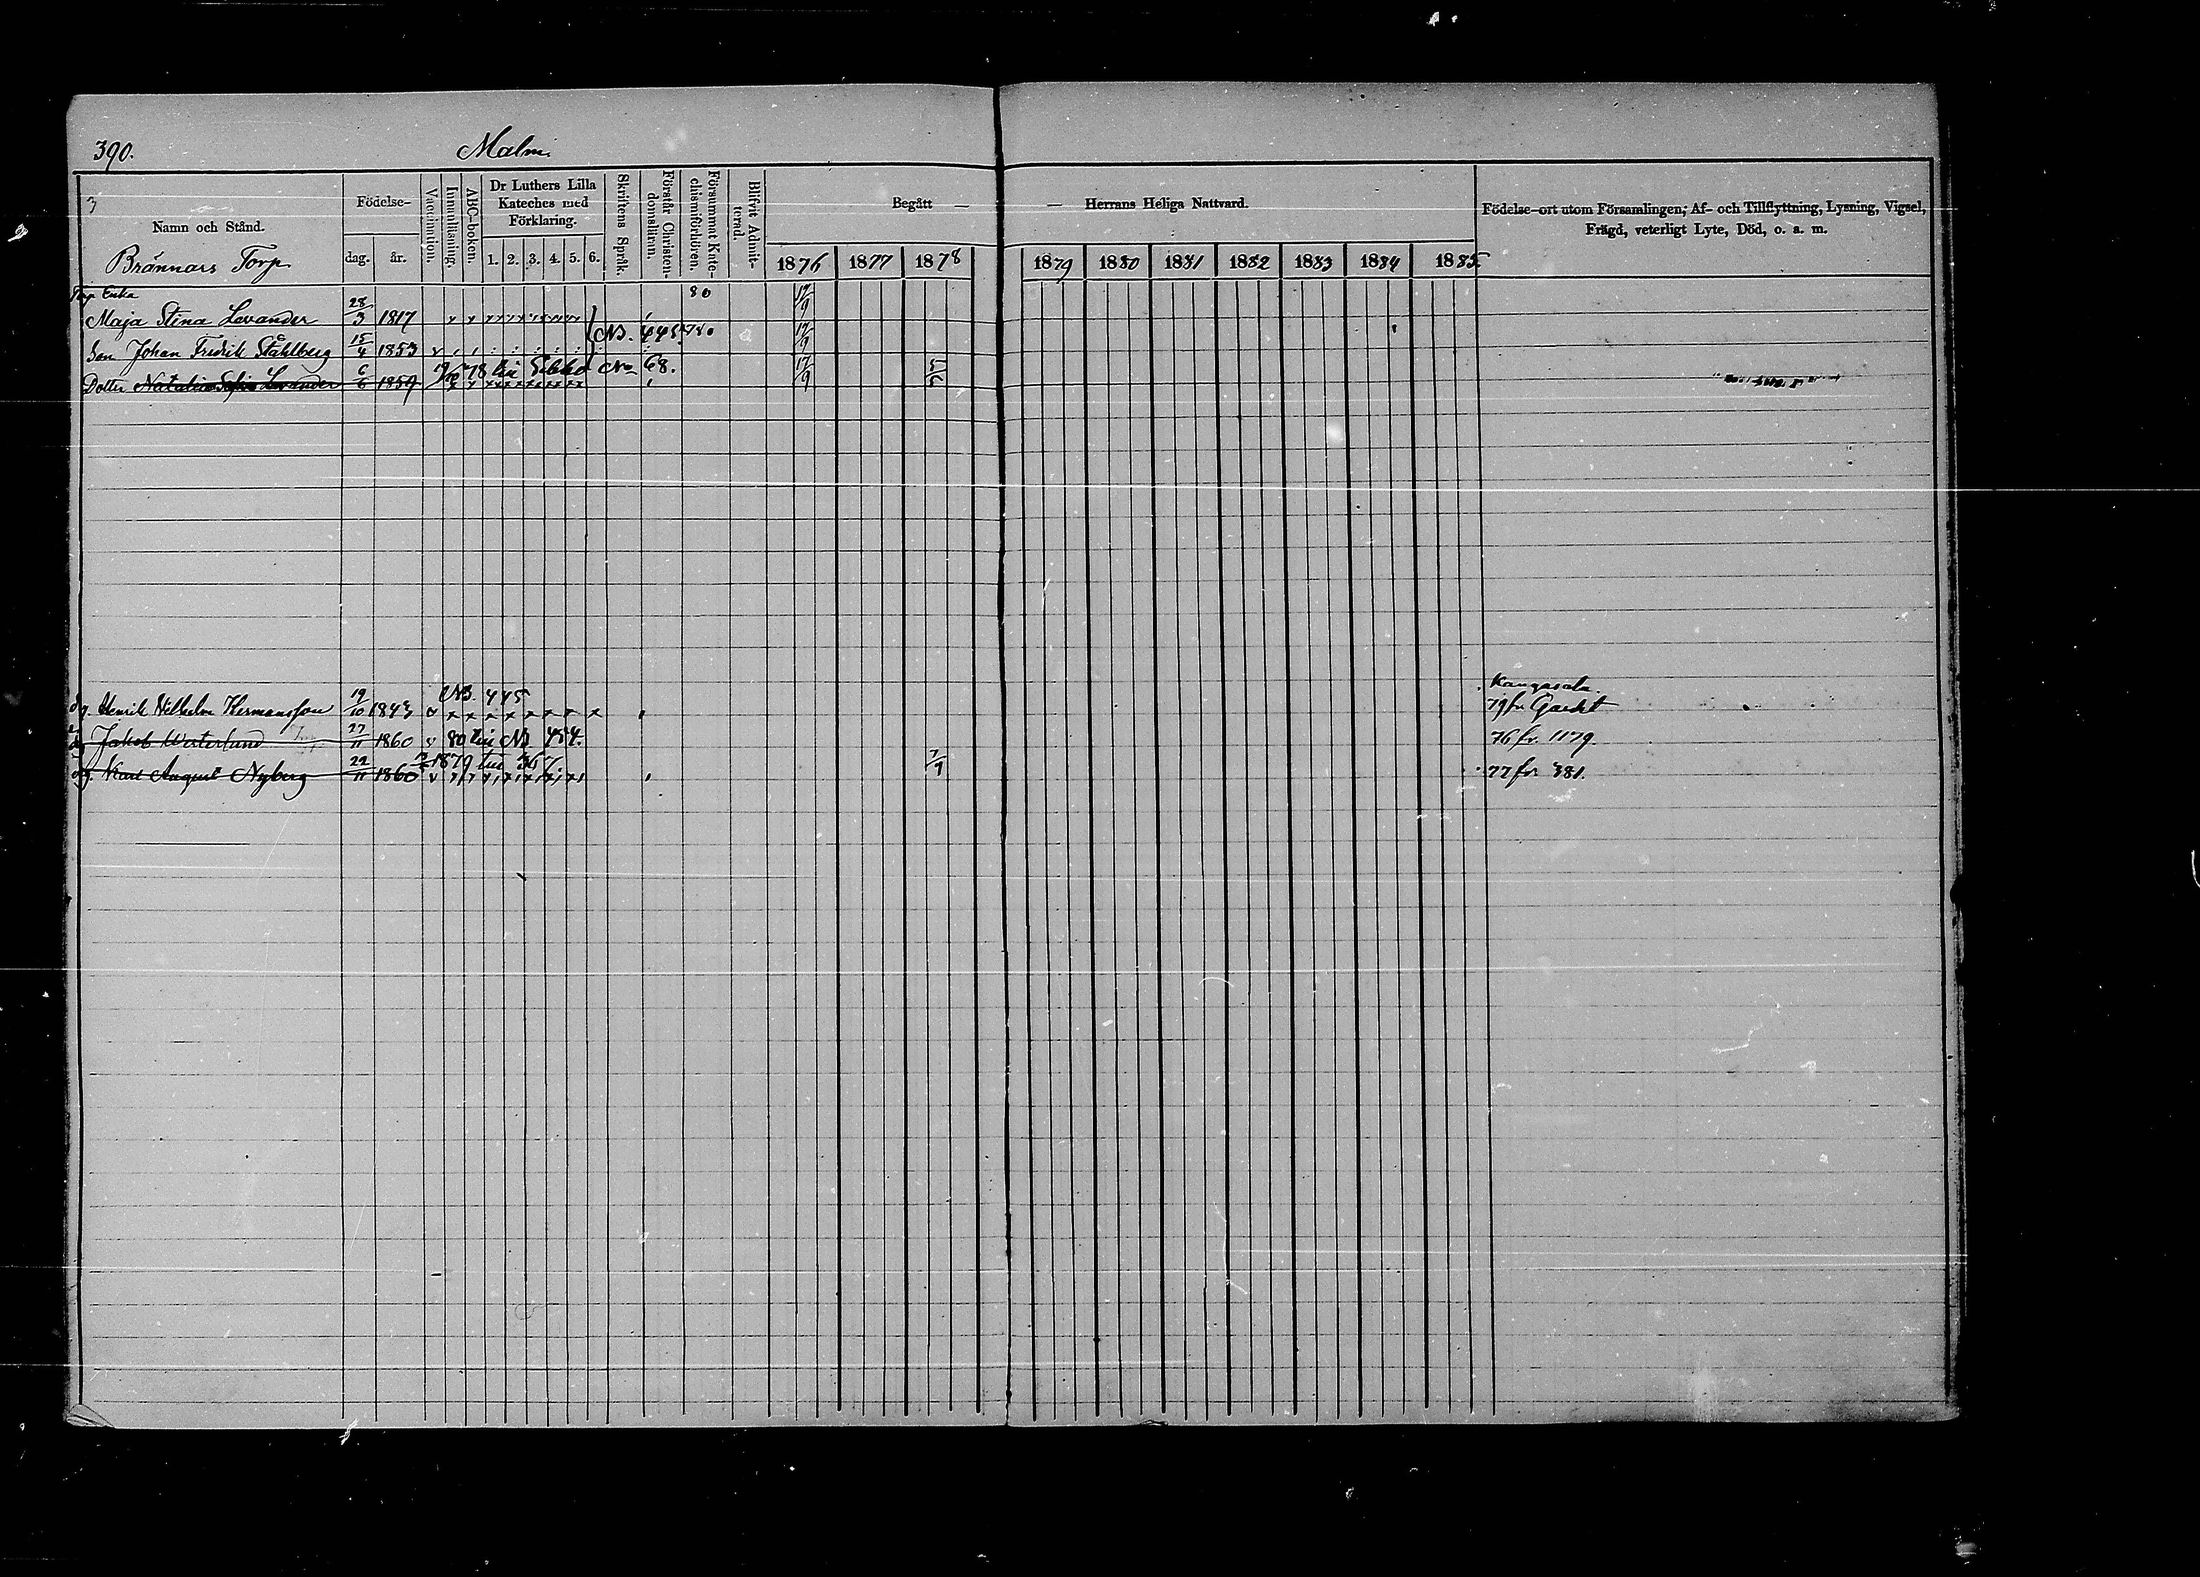 390.
Malm.
3
Namn och Stånd.
Födelse-
dag. år.
Vaccination.
Innanläsning.
ABC-boken.
Dr Luthers Lilla
Kateches med
Förklaring.
1. 2. 3. 4. 5. 6.
Skriftens Språk.
Förstår Christen-
domsläran.
Försummat Kate-
chismiförhören.
Blifvit Admit-
terad.
Begått —
— Herrans Heliga Nattvard.
1876 1877 1878 1879 1880 1881 1882 1883 1884 1885
Födelse-ort utom Församlingen; Af- och Tillflyttning, Lysning, Vigsel,
Frägd, veterligt Lyte, Död, o. a. m.
Brännars Torp
Torp Enka 80
Maja Stina Levander 28/3 1817 17/9
Son Johan Fredrik Ståhlberg 15/4 1853 NB. 445 17/9
Dotter Natalia Sofia Levander 6/6 1859 78 till Sibbo No 68. 17/9
Kangasala.
dg. Henrik Wilhelm Hermansson 19/10 1843 NB. 445 79 fr
Jakob Westerlund 27/11 1860 80 till NB 454. 76 fr. 1179.
dg. Karl August Nyberg 22/11 1860 1879 till 367. 7/9 77 fr 381.